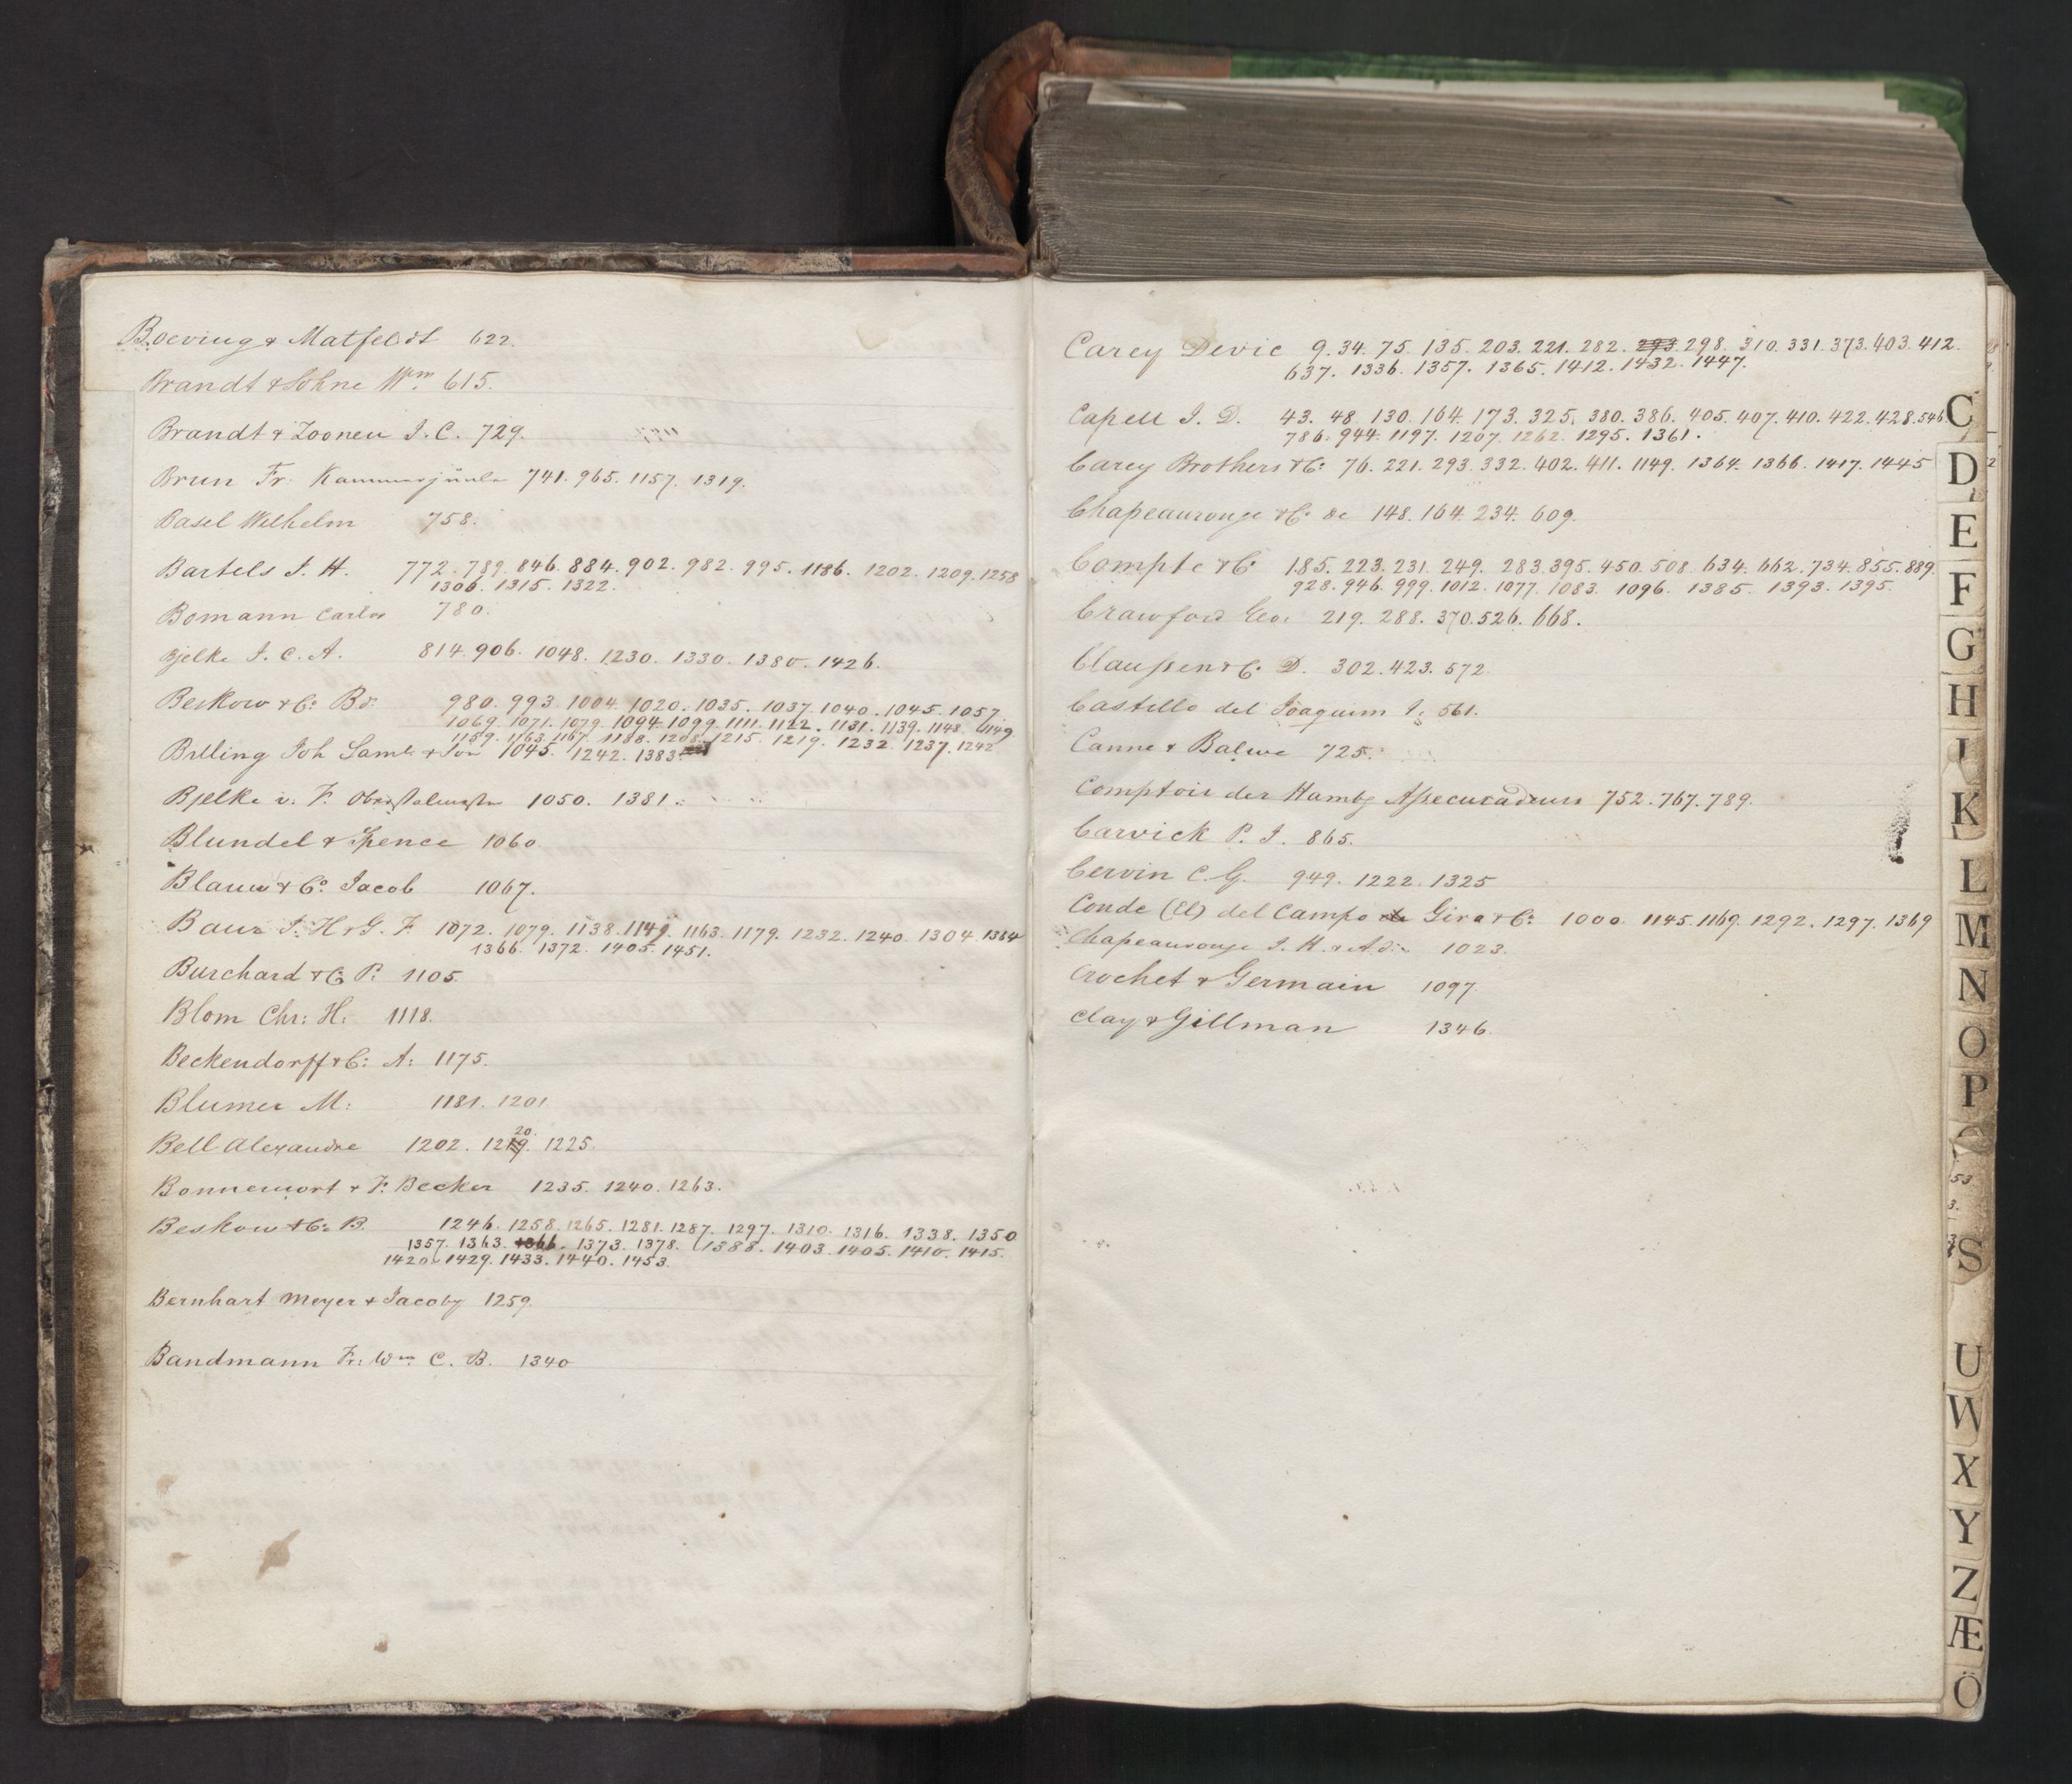 Boeving & Matfeldt 622.
Brandt & Sohne Wm 615.
Brandt & Zoonen J. C. 729.
Brun Fr: Kammerjunker 741. 965. 1157. 1319.
Basel Wilhelm 758.
Bartels J. H. 772. 789. 846. 884. 902. 982. 995. 1186. 1202. 1209. 1258
1306. 1315. 1322.
Bomann Carlos 780.
Bjelke J. C. A. 814. 906. 1048. 1230. 1330. 1380. 1426.
Beskow & Co: Bd: 980. 993. 1004. 1020. 1035. 1037. 1040. 1045. 1057
1069. 1071. 1079. 1094. 1099. 1111. 1122. 1131. 1139. 1148. 1149
1159. 1163. 1167. 1188. 1208. 1215. 1219. 1232. 1237. 1242
Billing Joh Saml & Son 1045. 1242. 1383.
Bjelke v. F. 1050. 1381.
Blundel & Spence 1060
Blauw & Co. Jacob 1067.
Baur J. H & G. F. 1072. 1079. 1138. 1149. 1163. 1179. 1232. 1240. 1304. 1364
1366. 1372. 1405. 1451.
Burchard & Co P. 1105.
Blom Chr: H: 1118.
Beckendorff & Co: A: 1175.
Blumer M: 1181. 1201
Bell Alexandre 1202. 1219. 20. 1225.
Bonnemort & F. Becker 1235. 1240. 1263.
Beskow & Co: B. 1246. 1258. 1265. 1281. 1287. 1297. 1310. 1316. 1338. 1350
1357. 1363. 1366. 1373. 1378. 1388. 1403. 1405. 1410. 1415.
1420. 1429. 1433. 1440. 1453.
Bernhart Meyer & Jacoby 1259.
Bandmann Fr: Wm C. B. 1340
Carey Devic 9. 34. 75. 135. 203. 221. 282. 293. 298. 310. 331. 373. 403. 412.
637. 1336. 1357. 1365. 1412. 1432. 1447.
Capell J. D. 43. 48. 130. 164. 173. 325. 380. 386. 405. 407. 410. 422. 428. 546.
786. 944. 1197. 1207. 1262. 1295. 1361.
Carey Brothers & Co: 76. 221. 293. 332. 402. 411. 1149. 1364. 1366. 1417. 1445
Chapeaurouge & Co. de 148. 164. 234. 609.
Compte & Co 185. 223. 231. 249. 283. 395. 450. 508. 634. 662. 734. 855. 889.
928. 946. 999. 1012. 1077. 1083. 1096. 1385. 1393. 1395.
Crawford Geo: 219. 288. 370. 526. 668.
Claussen & Co. D. 302. 423. 572.
Castillo del Joaquim J: 561.
Canne & Balwe 725.
Comptoir der Hambg Assecuradeurs 752. 767. 789.
Carvick P. J. 865.
Cervin C. G. 949. 1222. 1325
Conde (El) del Campo de Gira & Co: 1000. 1145. 1169. 1292. 1297. 1369
Chapeaurouge J. H. & Ad: 1023.
Crochet & Germain 1097.
Clay & Gillman 1346.
C
D
E
F
G
H
I
K
L
M
N
O
P
S
U
W
X
Y
Z
Æ
Ö